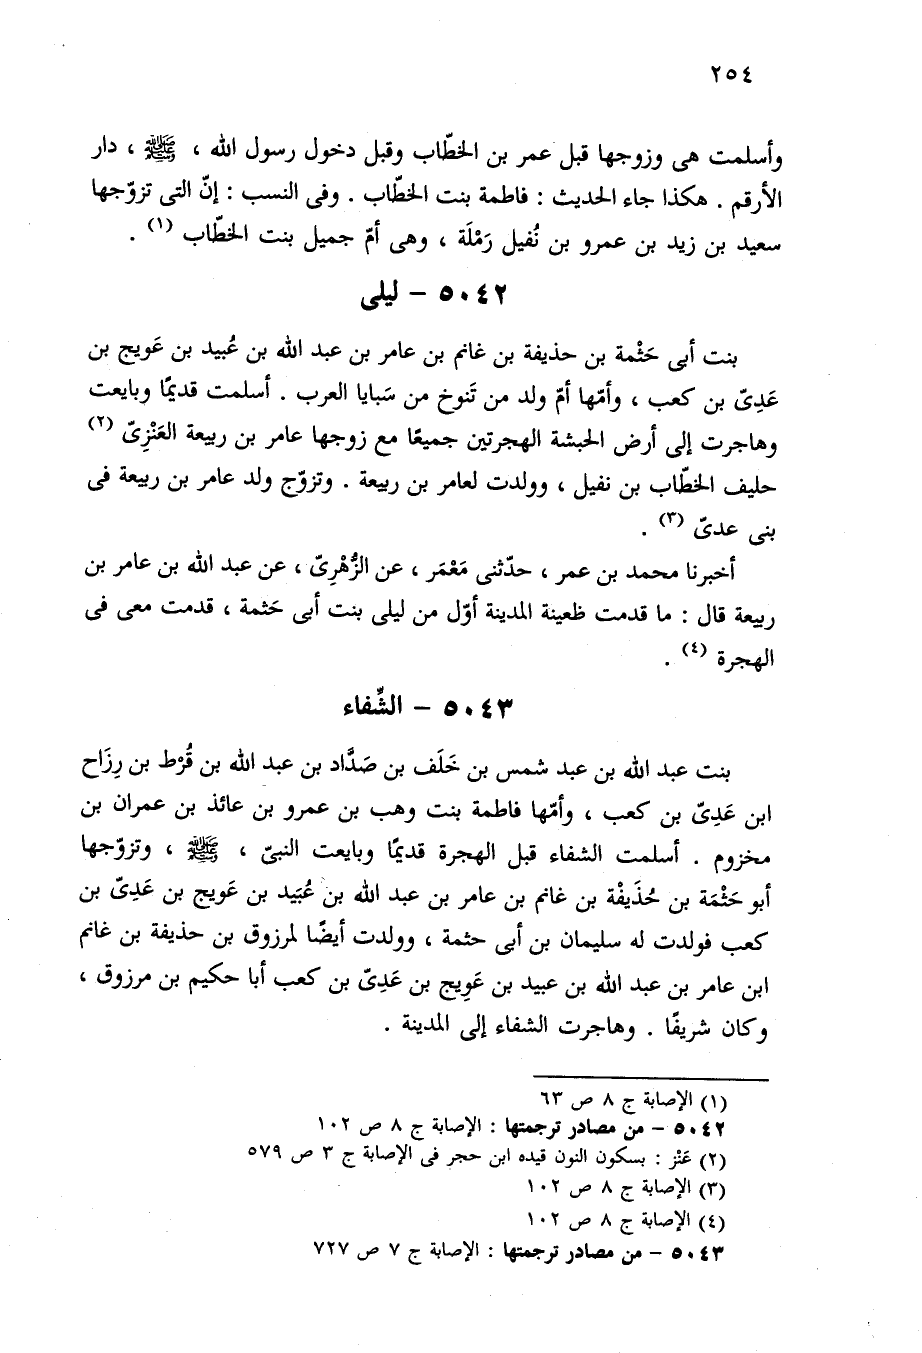 ٢٥٤
وأسلمت هى وزوجها قبل عمر بن الخطّاب وقبل دخول رسول الله ، ﷺ ، دار
الأرقم . هكذا جاء الحديث : فاطمة بنت الخطّاب . وفى النسب : إنّ التى تزوّجها
سعيد بن زيد بن عمرو بن نُفيل رَمْلَة ، وهى أمّ جميل بنت الخطّاب (١) .
٥٠٤٢ – ليلى
بنت أبى حَثْمة بن حذيفة بن غانم بن عامر بن عبد الله بن عُبيد بن عَويج بن
عَدِىّ بن كعب ، وأمّها أمّ ولد من تَنوخ من سَبايا العرب . أسلمت قديمًا وبايعت
وهاجرت إلى أرض الحبشة الهجرتين جميعًا مع زوجها عامر بن ربيعة العَنْزِىّ (٢)
حليف الخطّاب بن نفيل ، وولدت لعامر بن ربيعة . وتزوّج ولد عامر بن ربيعة فى
بنى عدىّ (٣) .
أخبرنا محمد بن عمر ، حدّثنى مَعْمَر ، عن الزُّهْرِىّ ، عن عبد الله بن عامر بن
ربيعة قال : ما قدمت ظعينة المدينة أوّل من ليلى بنت أبى حَثمة ، قدمت معى فى
الهجرة (٤) .
٥٠٤٣ – الشِّفاء
بنت عبد الله بن عبد شمس بن خَلَف بن صَدَّاد بن عبد الله بن قُرْط بن رِزَاح
ابن عَدِىّ بن كعب ، وأمّها فاطمة بنت وهب بن عمرو بن عائذ بن عمران بن
مخزوم . أسلمت الشفاء قبل الهجرة قديمًا وبايعت النبىّ ، ﷺ ، وتزوّجها
أبو حَثْمَة بن حُذَيفْة بن غانم بن عامر بن عبد الله بن عُبَيد بن عَويج بن عَدِىّ بن
كعب فولدت له سليمان بن أبى حثمة ، وولدت أيضًا لمرزوق بن حذيفة بن غانم
ابن عامر بن عبد الله بن عبيد بن عَوِيج بن عَدِىّ بن كعب أبا حكيم بن مرزوق ،
وكان شريفًا . وهاجرت الشفاء إلى المدينة .
(١) الإصابة ج ٨ ص ٦٣
٥٠٤٢ – من مصادر ترجمتها : الإصابة ج ٨ ص ١٠٢
(٢) عَنْز : بسكون النون قيده ابن حجر فى الإصابة ج ٣ ص ٥٧٩
(٣) الإصابة ج ٨ ص ١٠٢
(٤) الإصابة ج ٨ ص ١٠٢
٥٠٤٣ – من مصادر ترجمتها : الإصابة ج ٧ ص ٧٢٧